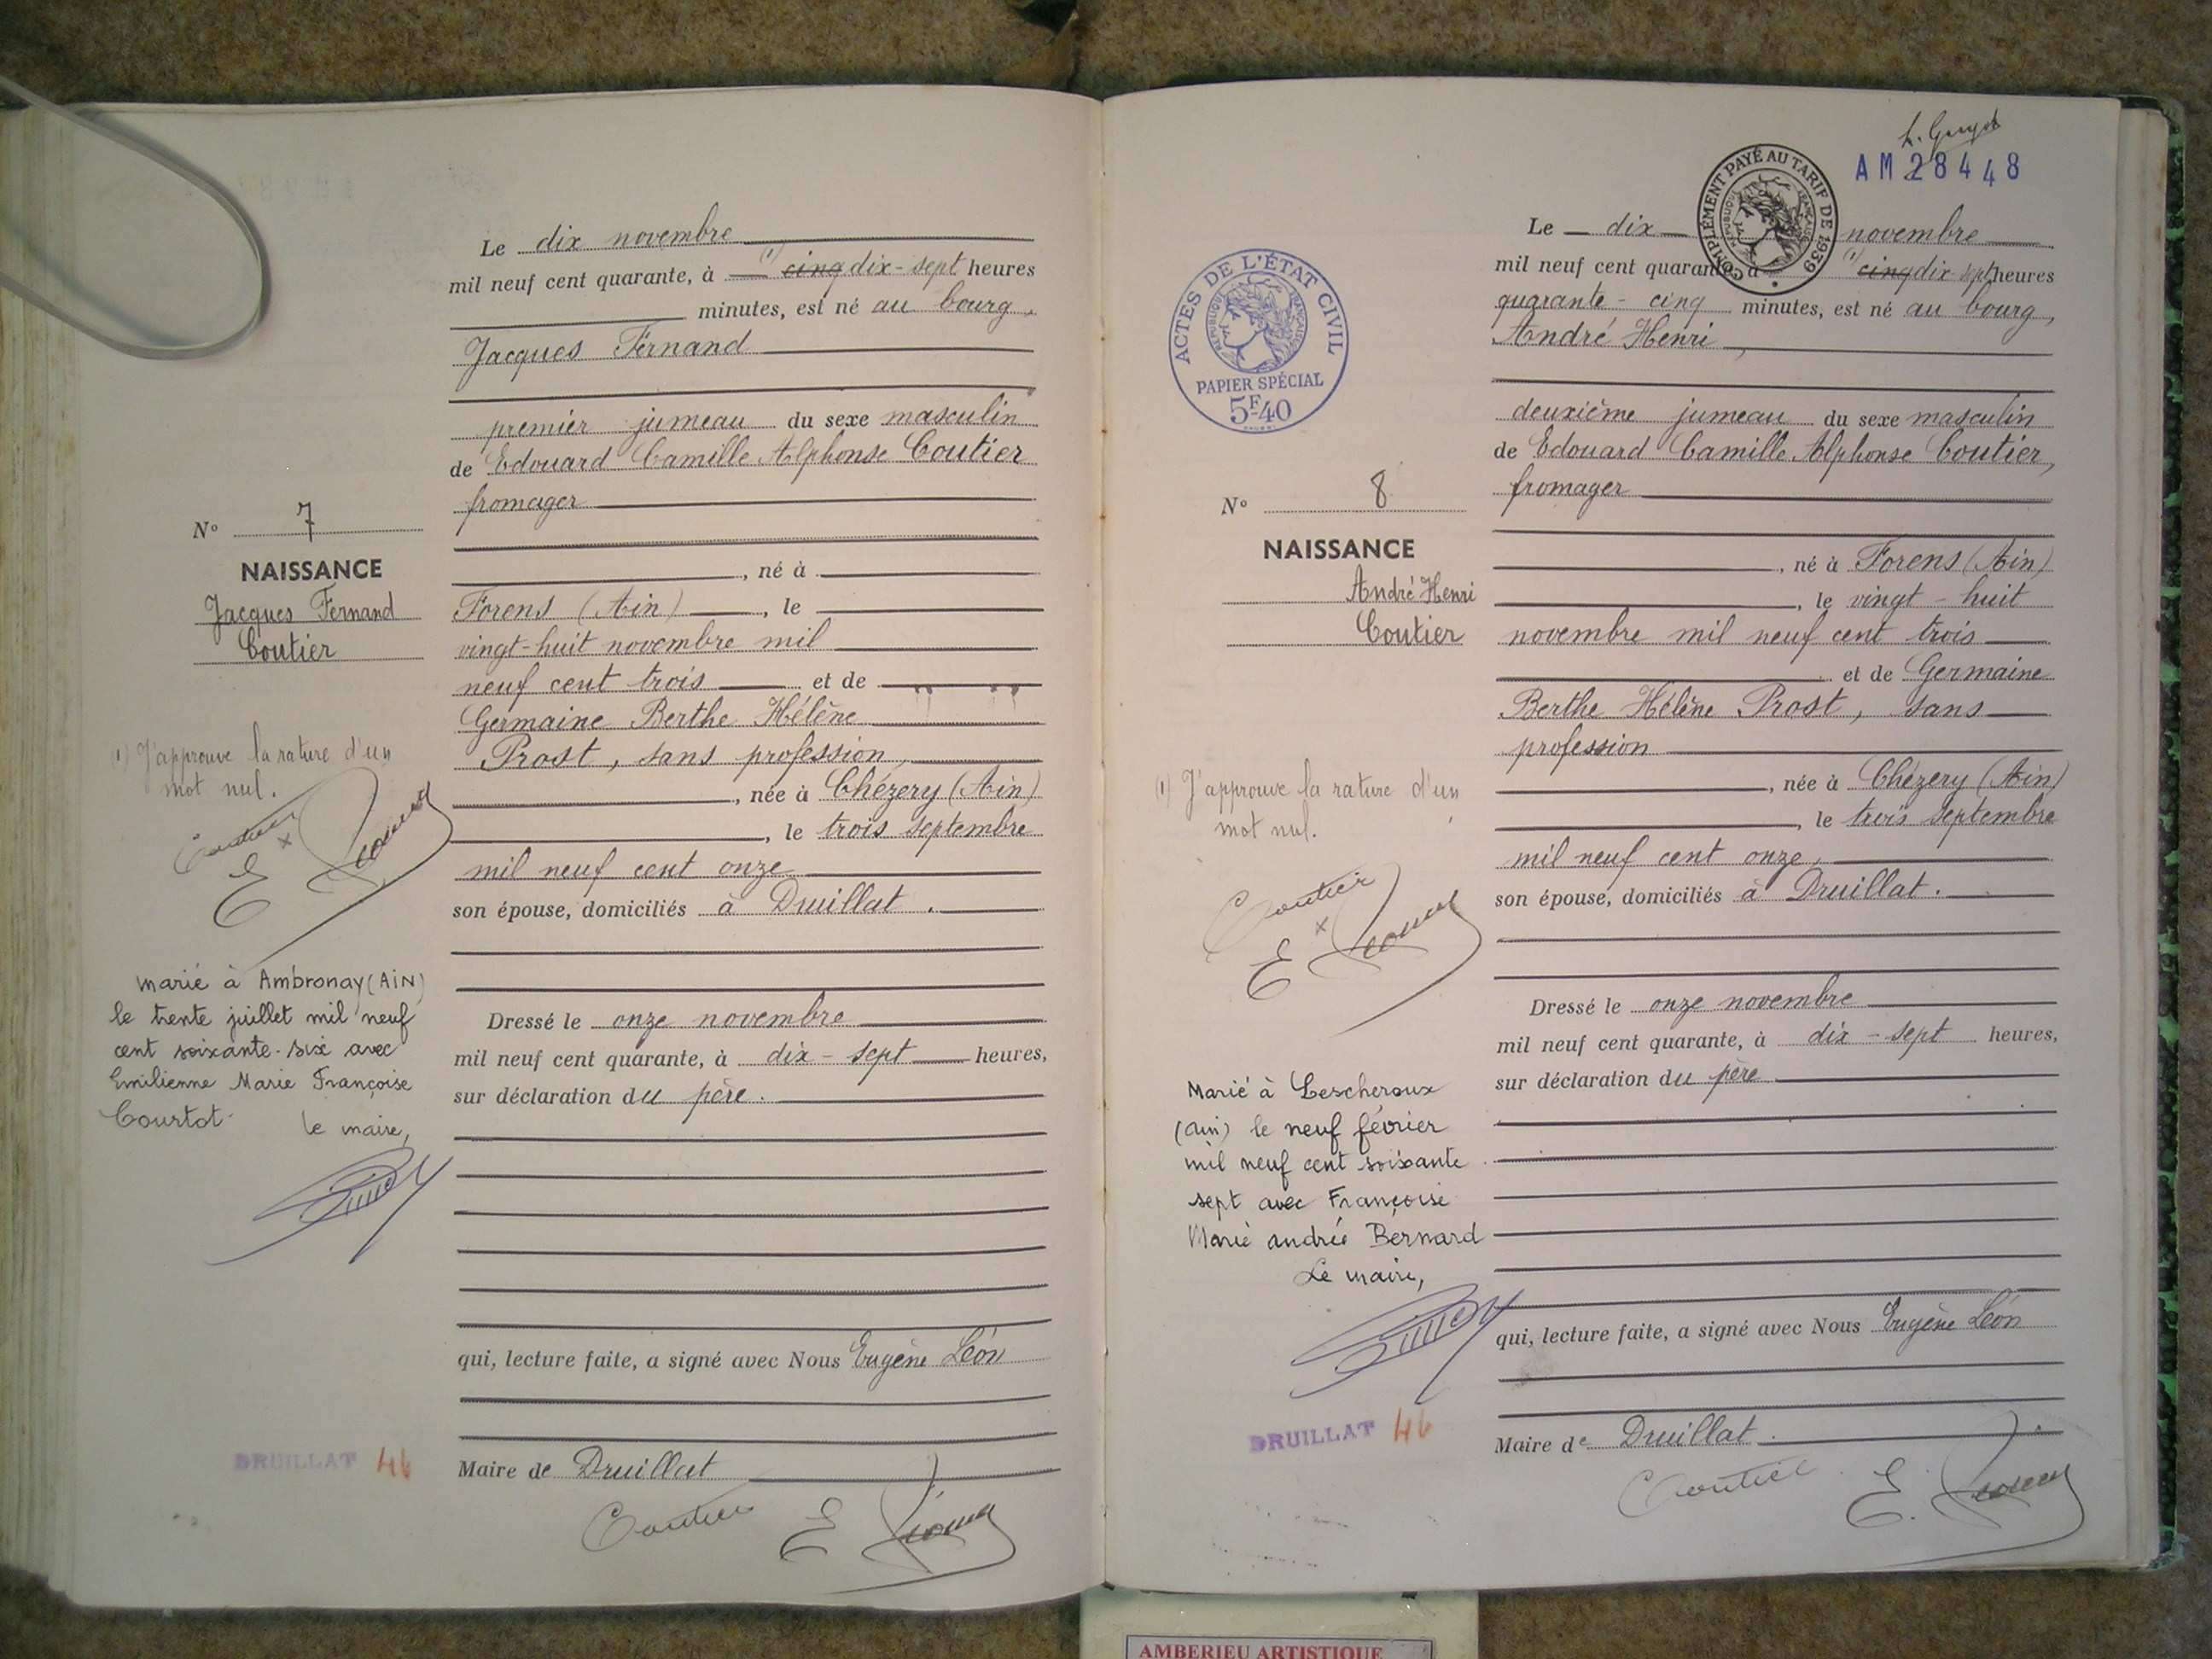 Le dix novembre
mil neuf cent quarante, à (1) cinq dix-sept heures
minutes, est né au bourg,
Jacques Fernand
premier jumeau du sexe masculin
de Edouard Camille Alphonse Coutier
fromager
N° 7
NAISSANCE
Jacques Fernand
Coutier
, né à
Forens (Ain), le
vingt-huit novembre mil
neuf cent trois et de
Germaine Berthe Hélène
Prost, sans profession,
, née à Chézery (Ain)
, le trois septembre
mil neuf cent onze
son épouse, domiciliés à Druillat.
(1) J'approuve la rature d'un
mot nul.
Coutier
E
marié à Ambronay (AIN)
le trente juillet mil neuf
cent soixante-six avec
Emilienne Marie Françoise
Courtot.
le maire,
Dressé le onze novembre
mil neuf cent quarante, à dix-sept heures,
sur déclaration du père.
qui, lecture faite, a signé avec Nous Eugène Léon
Maire de Druillat
DRUILLAT 46
Coutier E
AM 28448
COMPLÉMENT PAYÉ AU TARIF DE 1939
RÉPUBLIQUE FRANÇAISE
Le dix novembre
mil neuf cent quarante à (1) cinq dix-sept heures
quarante-cinq minutes, est né au bourg,
André Henri,
ACTES DE L'ÉTAT CIVIL
RÉPUBLIQUE FRANÇAISE
PAPIER SPÉCIAL
5F40
deuxième jumeau du sexe masculin
de Edouard Camille Alphonse Coutier,
fromager
N° 8
NAISSANCE
André Henri
Coutier
, né à Forens (Ain)
, le vingt-huit
novembre mil neuf cent trois
et de Germaine
Berthe Hélène Prost, sans
profession
, née à Chézery (Ain)
, le trois septembre
mil neuf cent onze,
son épouse, domiciliés à Druillat.
(1) J'approuve la rature d'un
mot nul.
Coutier
E
Marié à Lescheroux
(Ain) le neuf février
mil neuf cent soixante
sept avec Françoise
Marie andrée Bernard
Le maire,
Dressé le onze novembre
mil neuf cent quarante, à dix-sept heures,
sur déclaration du père
qui, lecture faite, a signé avec Nous Eugène Léon
Maire de Druillat.
DRUILLAT 46
Coutier E.
AMBERIEU ARTISTIQUE